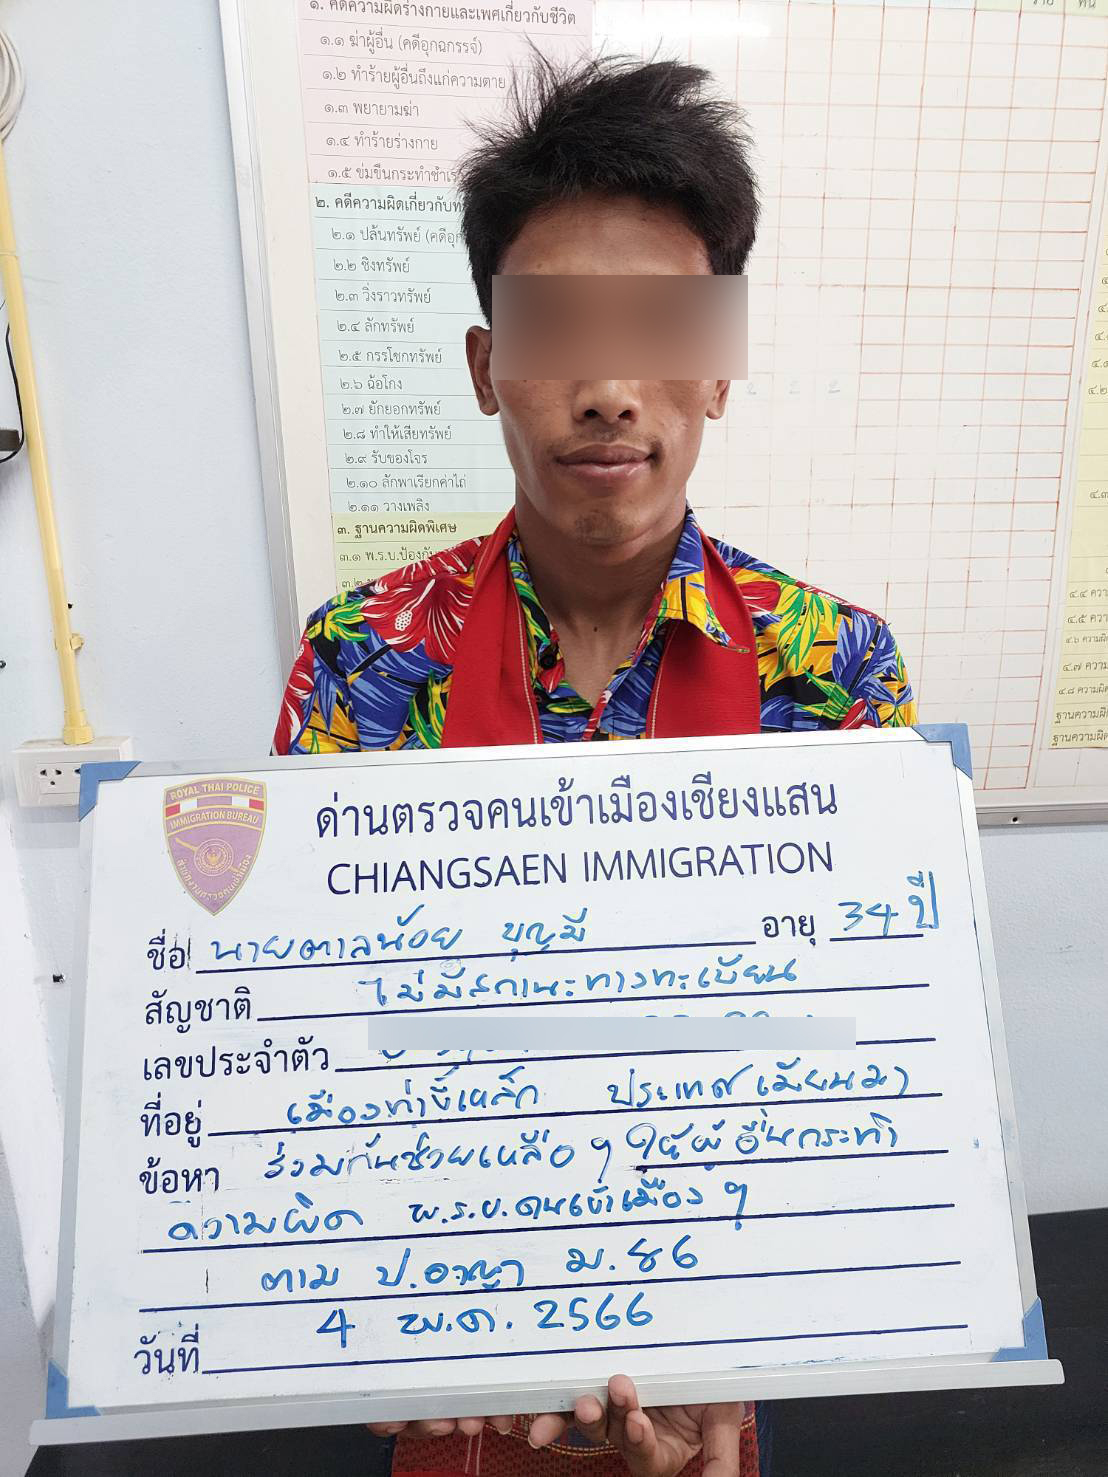 ๑. คดีความผิดร่างกายและเพศเกี่ยวกับชีวิต
๑.๑ ฆ่าผู้อื่น (คดีอุกฉกรรจ์)
๑.๒ ทำร้ายผู้อื่นถึงแก่ความตาย
๑.๓ พยายามฆ่า
๑.๔ ทำร้ายร่างกาย
๑.๕ ข่มขืนกระทำชำเรา
๒. คดีความผิดเกี่ยวกับ
๒.๑ ปล้นทรัพย์
๒.๒ ชิงทรัพย์
๒.๓ วิ่งราวทรัพย์
๒.๔ ลักทรัพย์
๒.๕ กรรโชกทรัพย์
๒.๖ ฉ้อโกง
๒.๗ ยักยอกทรัพย์
๒.๘ ทำให้เสียทรัพย์
๒.๙ รับของโจร
๒.๑๐ ลักพาเรียกค่าไถ่
๒.๑๑ วางเพลิง
๓. ฐานความผิดพิเศษ
๓.๑ พ.ร.บ.ป้องกัน
ROYAL THAI POLICE
IMMIGRATION BUREAU
สำนักงานตรวจคนเข้าเมือง
ด่านตรวจคนเข้าเมืองเชียงแสน
CHIANGSAEN IMMIGRATION
ชื่อ นายตาลน้อย บุญมี อายุ 34 ปี
สัญชาติ ไม่มีสถานะทางทะเบียน
เลขประจำตัว
ที่อยู่ เมืองท่าขี้เหล็ก ประเทศเมียนมา
ข้อหา ร่วมกันช่วยเหลือฯ ให้ผู้อื่นกระทำ
ความผิด พ.ร.บ.คนเข้าเมืองฯ
ตาม ป.อาญา ม.86
วันที่ 4 พ.ค. 2566